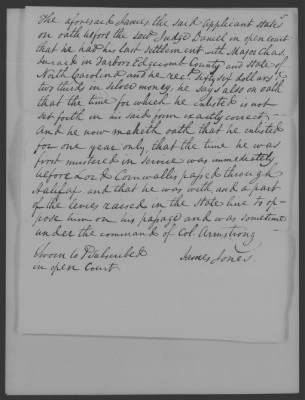 The aforesaid James the said applicant states
on oath before the said Judge Daniel in open court
that he had his last settlement with Major Chas.
in Tarboro Edgecomb County and State of
North Carolina and he recd. Sixty six dollars &
two thirds in silver money, he says also on oath
that the time for which he enlisted is not
set forth in his said form exactly correct,—
And he now maketh oath that he enlisted
for one year only, that the time he was
first mustered in service was immediately
before Lord Cornwallis passed through
Halifax and that he was with and a part
of the levies raised in the State line to op-
pose him on his passage and was sometime
under the command of Col Armstrong
Sworn to & Subscribed
in open Court
James Jones